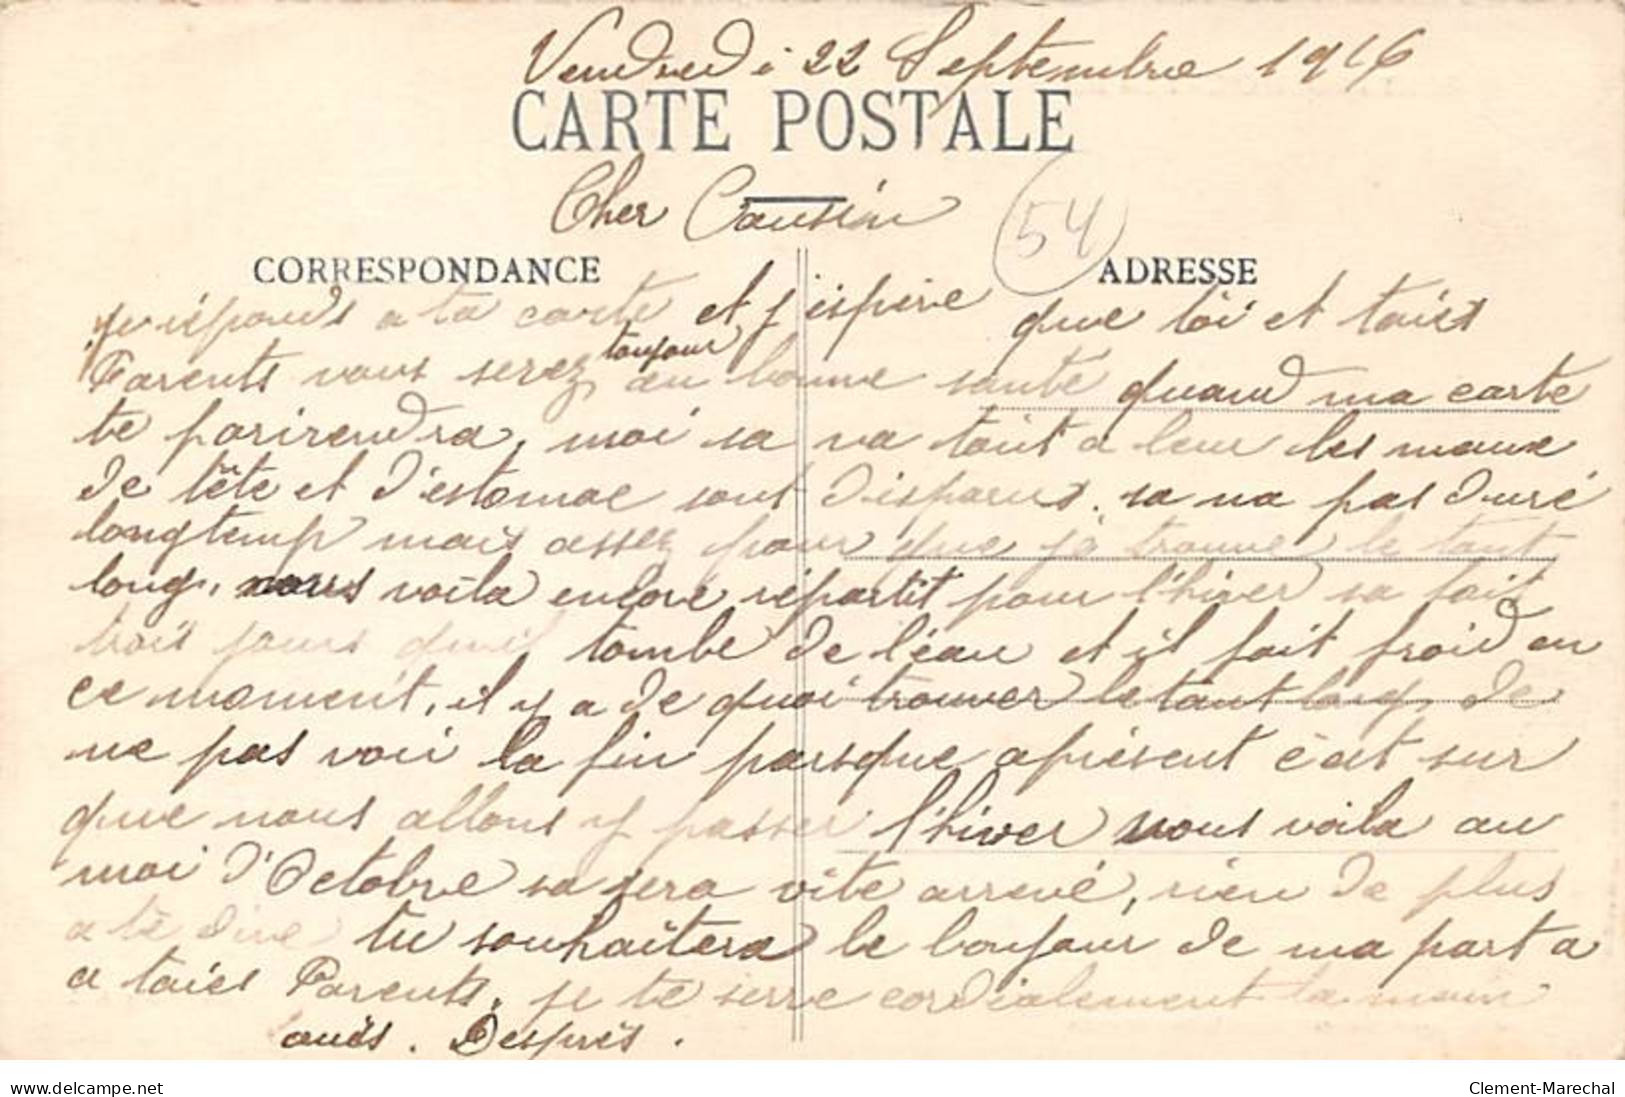 Vendredi 22 Septembre 1916
CARTE POSTALE
Cher Cousin
54
CORRESPONDANCE
ADRESSE
je répouds a ta carte et j'éspère que toi et taies
Parents vous serez toujour au bonne santé quand ma carte
te parirendra, moi sa va tout a leur les maux
de tête et d'estomac sont disparus. sa na pas duré
longtemp mais assez pour que jé trouve le tant
long, nous voila encore répartit pour l'hiver sa fait
trois jours quil tombe de l'éau et il fait froid en
ce moment, il y a de quoi trouver le tant long, de
ne pas voir la fin parsque aprésent c'est sur
que nous allons y passer l'hiver nous voila au
moi d'Octobre sa sera vite arrevé, rien de plus
a te dire tu souhaitera le bonjour de ma part a
a taies Parents, je te serre cordialement la main
Després.
www.delcampe.net
Clement-Marechal